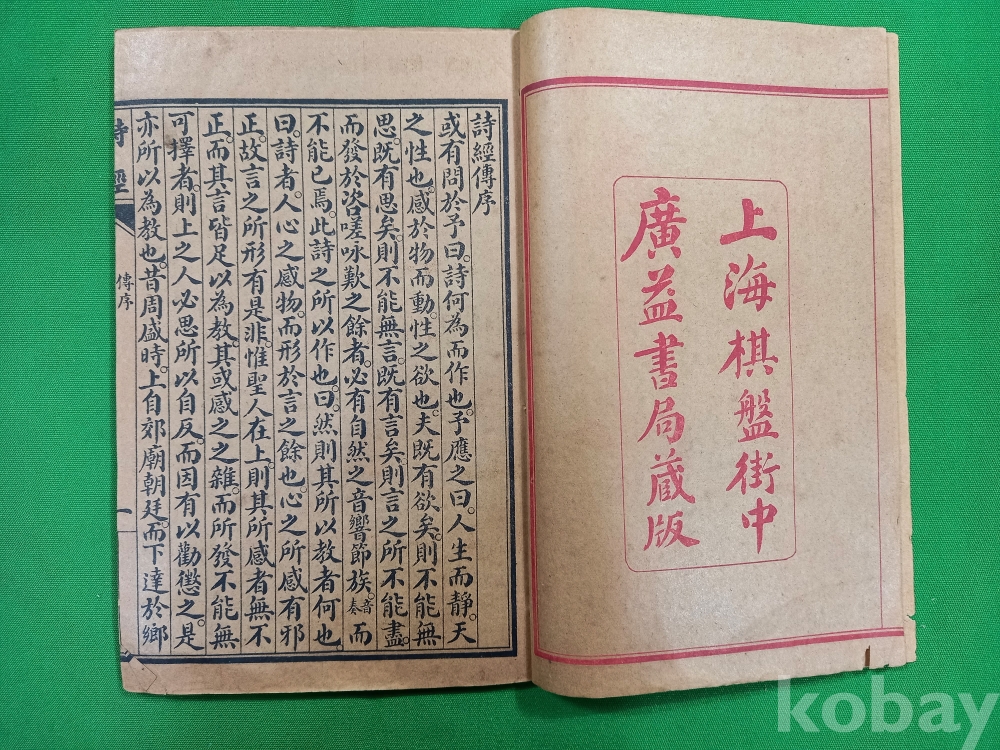 上海棋盤街中
廣益書局蔵版
詩經傳序
或有問於予曰。詩何為而作也。予應之曰。人生而靜。天
之性也。感於物而動。性之欲也。夫既有欲矣。則不能無
思。既有思矣。則不能無言。既有言矣。則言之所不能盡。
而發於咨嗟咏歎之餘者。必有自然之音響節族。音奏而
不能已焉。此詩之所以作也。曰。然則其所以教者何也。
曰。詩者。人心之感物。而形於言之餘也。心之所感有邪
正。故言之所形有是非。惟聖人在上。則其所感者無不
正。而其言皆足以為教。其或感之之雜。而所發不能無
可擇者。則上之人必思所以自反。而因有以勸懲之。是
亦所以為教也。昔周盛時。上自郊廟朝廷。而下達於鄉
詩經
傳序
一
kobay